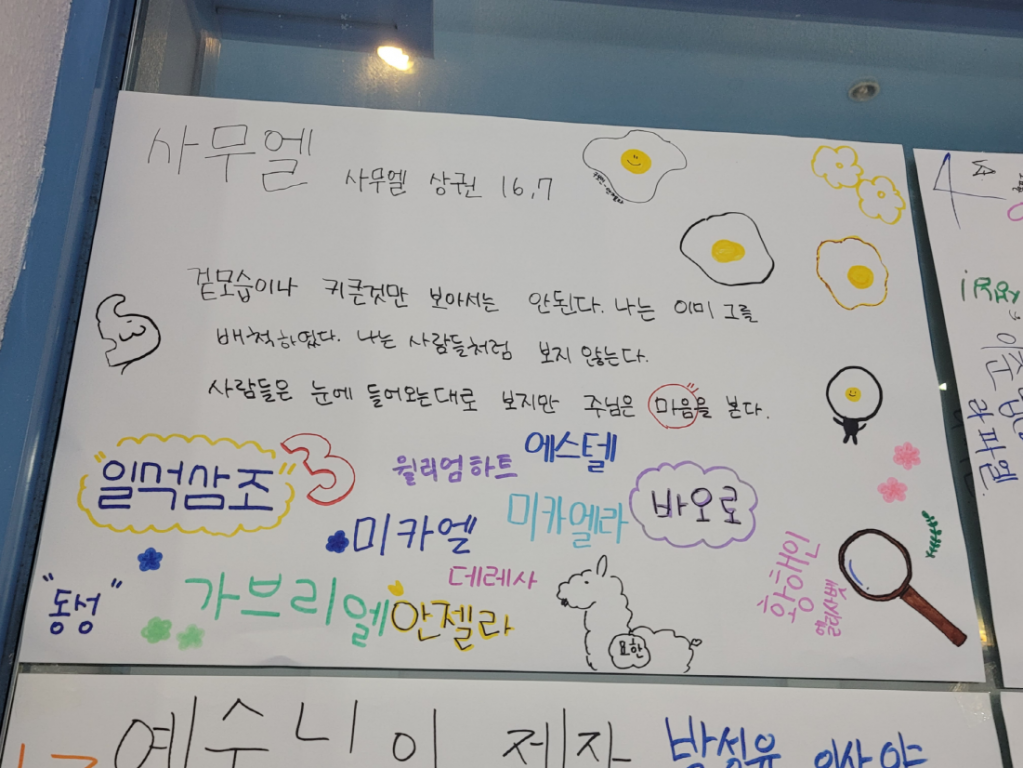 사무엘
사무엘 상권 16,7
겉모습이나 키큰것만 보아서는 안된다. 나는 이미 그를
배척하였다. 나는 사람들처럼 보지 않는다.
사람들은 눈에 들어오는대로 보지만 주님은 "마음"을 본다.
"일석삼조" 3
윌리엄하트
에스텔
미카엘
미카엘라
바오로
"동성"
가브리엘
데레사
안젤라
요한
황해인
엘리사벳
이준
라파엘.
예수니이 제자